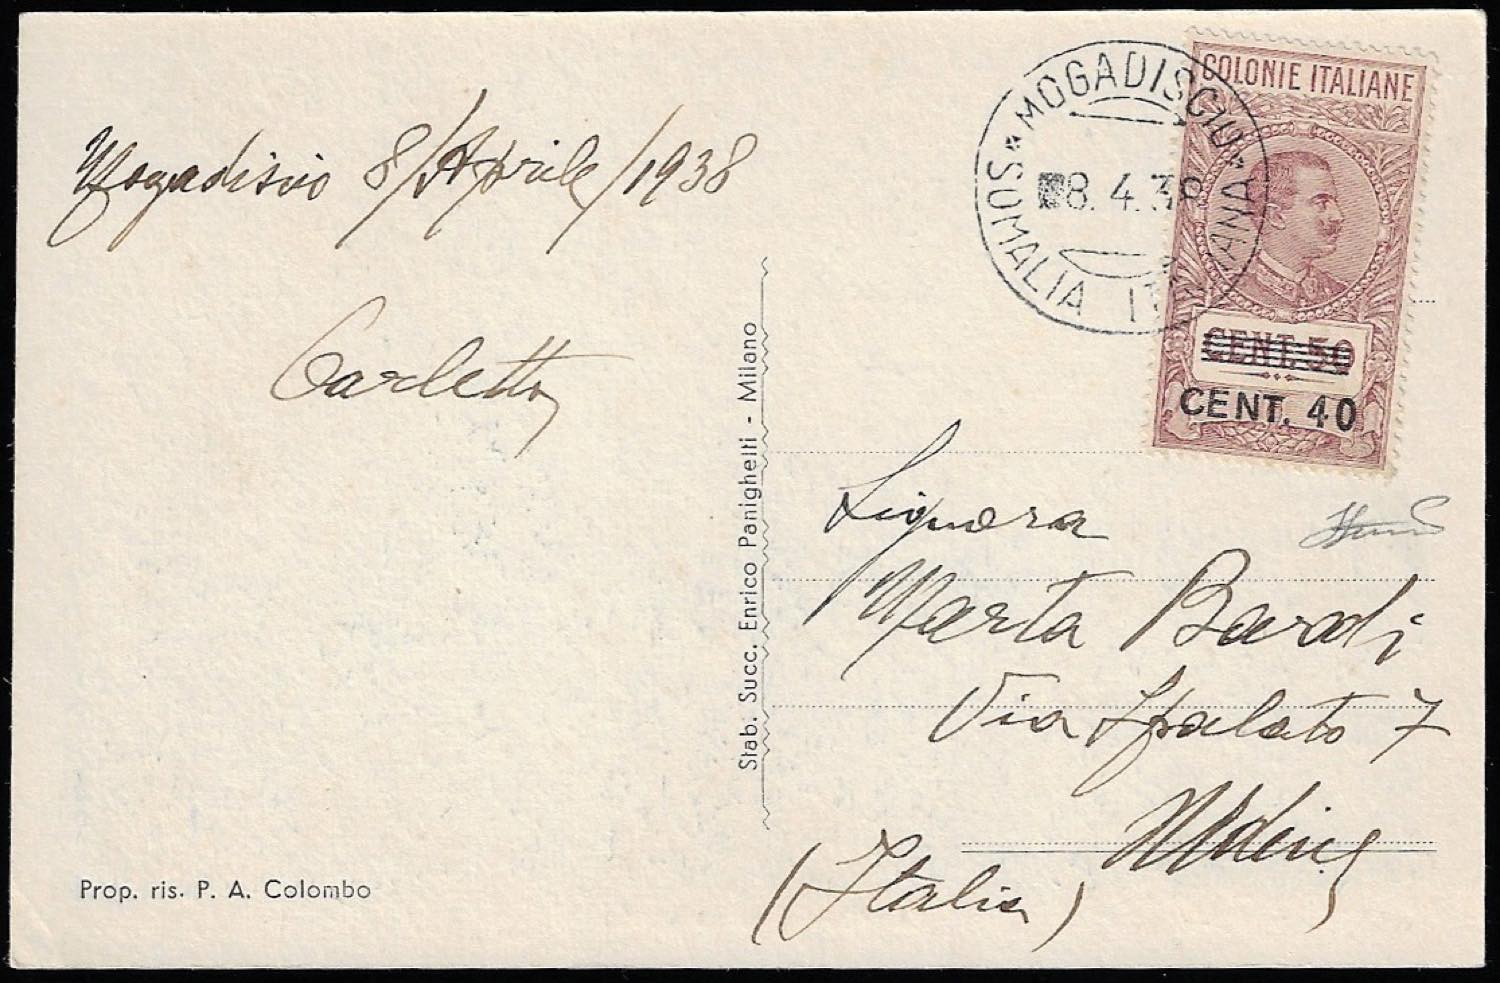 Mogadiscio 8/Aprile/1938
Carletto
Prop. ris. P. A. Colombo
Stab. Succ. Enrico Panighetti - Milano
MOGADISCIO
8.4.38
SOMALIA ITALIANA
COLONIE ITALIANE
CENT. 50
CENT. 40
Signora
Marta Bardi
Via Spalato 7
Udine
(Italia)